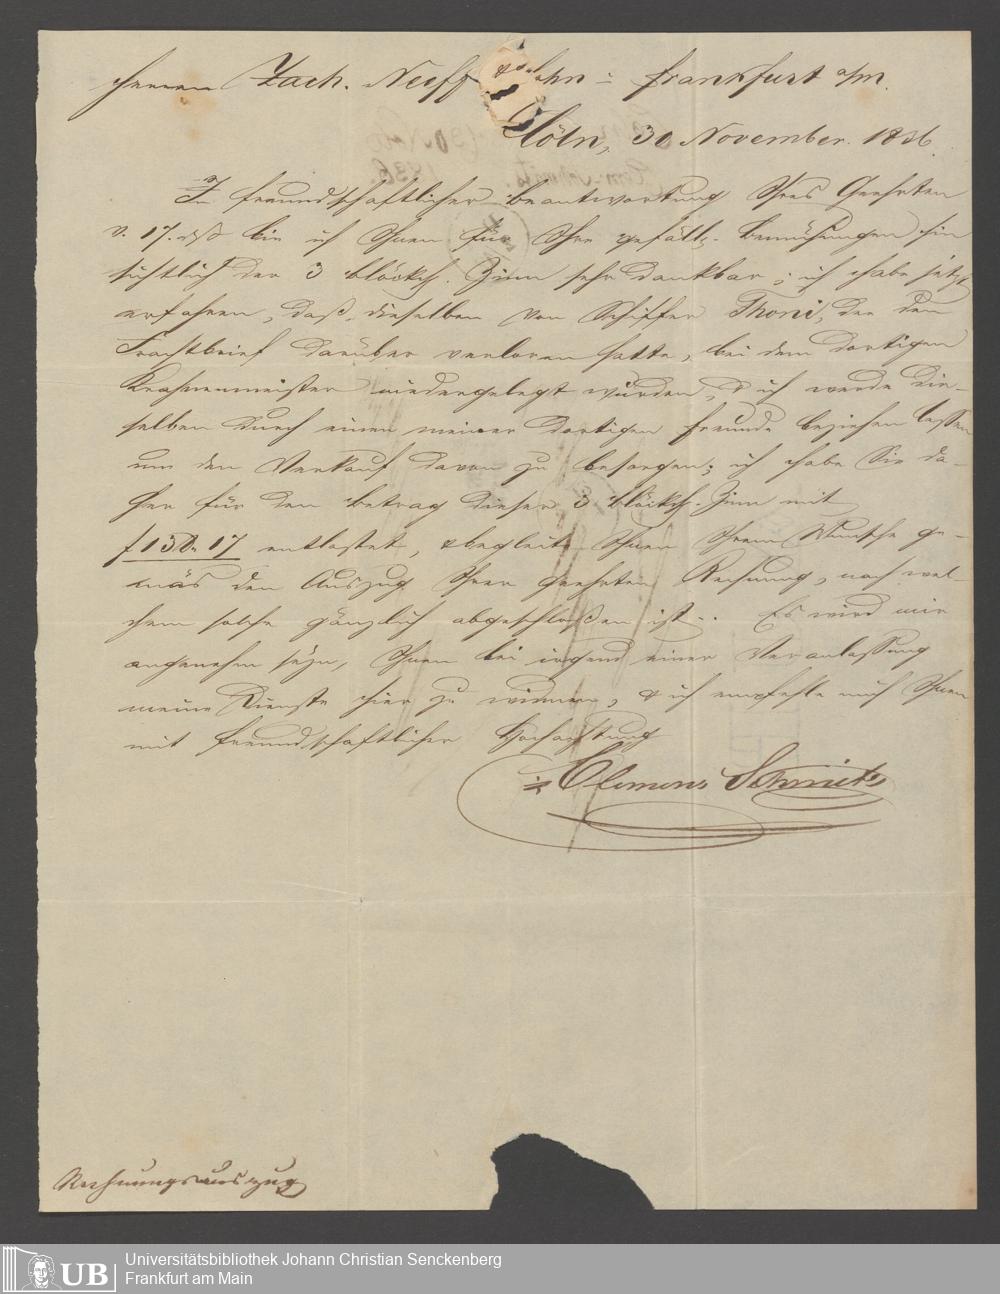 Herren Zach. Neuff & Sohn in Frankfurt a/m.
Cöln, 30 November. 1836.
In freundschaftlicher Beantwortung Ihres Geehrten
v. 17. dß bin ich Ihnen für Ihre gefäll. Bemühungen hin
sichtlich der 3 blöckch. Zinn sehr dankbar; ich habe jetzt
erfahren, daß dieselben von Schiffer Thoni, der den
Frachtbrief darüber verloren hatte, bei dem dortigen
Krahnenmeister niedergelegt wurden, & ich werde die-
selben durch einen meiner dortigen Freunde beziehen lassen
um den Verkauf davon zu besorgen; ich habe Sie da-
her für den Betrag dieser 3 blöckch. Zinn mit
17 entlastet, & begleite Ihnen Ihrem Wunsche ge-
mäs den Auszug Ihrer geehrten Rechnung, nach wel-
chem solche gänzlich abgeschloßen ist. Es wird mir
angenehm seyn, Ihnen bei irgend einer Veranlassung
meine Dienste hier zu widmen, & ich empfehle mich Ihnen
mit freundschaftlicher Hochachtung
Clemens Schmits
Rechnungsauszug
UB
Universitätsbibliothek Johann Christian Senckenberg
Frankfurt am Main